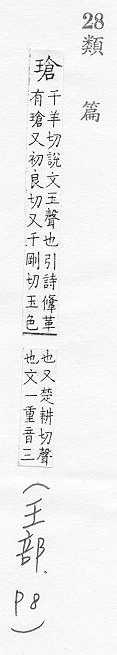 28類 篇
瑲
千羊切說文玉聲也引詩鞗革
有瑲又初良切又千剛切玉色
也又楚耕切聲
也文一重音三
(王部、P8)